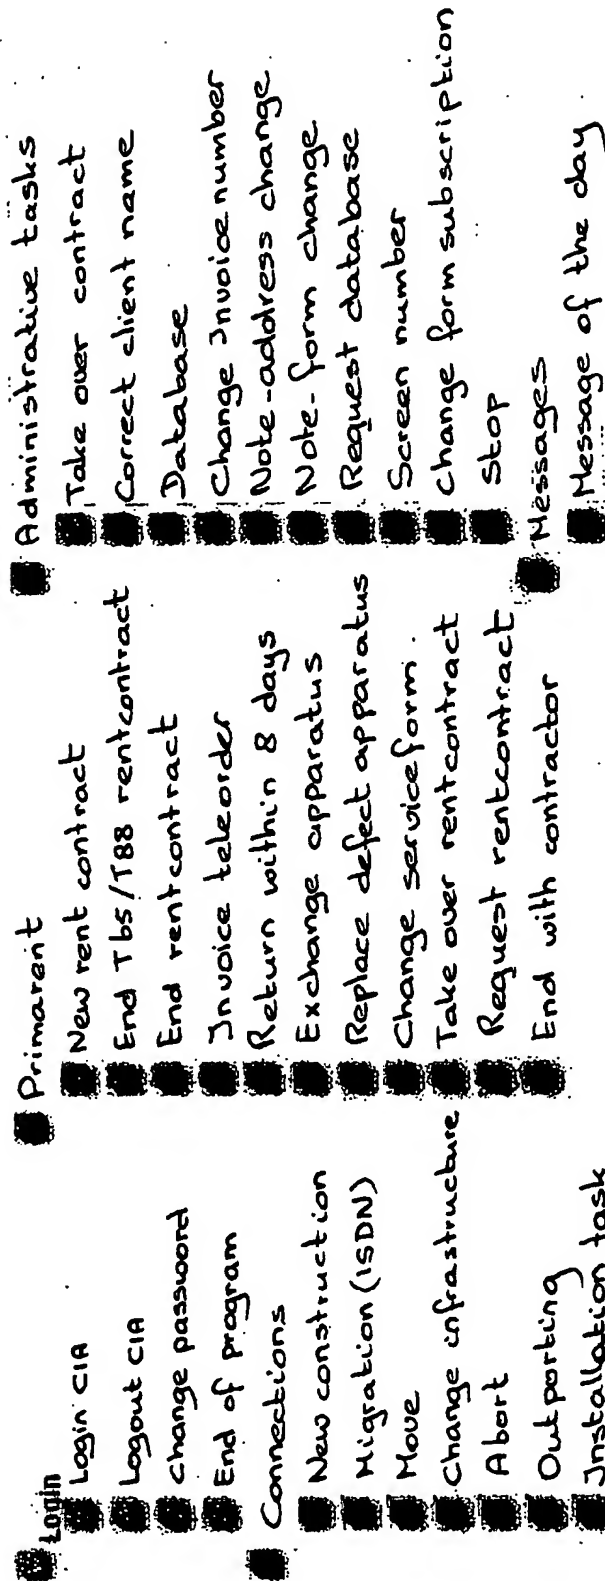 Login
Login CIA
Logout CIA
change password
End of program
Connections
New construction
Migration (ISDN)
Move
Change infrastructure
Abort
Outporting
Installation task
Primarent
New rent contract
End Tbs/T88 rentcontract
End rentcontract
Invoice teleorder
Return within 8 days
Exchange apparatus
Replace defect apparatus
Change serviceform.
Take over rentcontract
Request rentcontract
End with contractor
Administrative tasks
Take over contract
Correct client name
Database
Change Invoice number
Note-address change
Note-form change
Request database
Screen number
Change form subscription
Stop
Messages
Message of the day